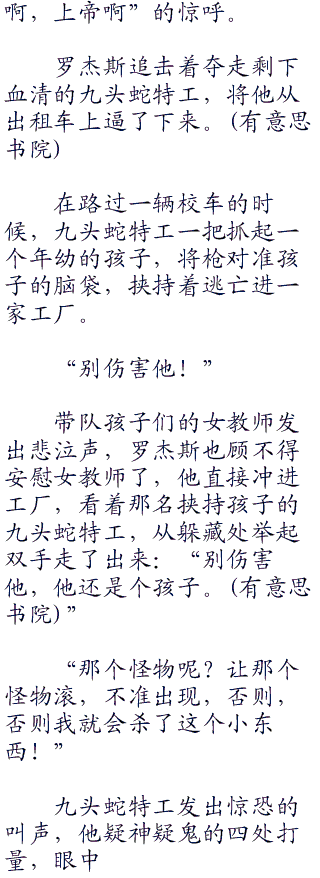 啊，上帝啊”的惊呼。
罗杰斯追击着夺走剩下
血清的九头蛇特工，将他从
出租车上逼了下来。(有意思
书院)
在路过一辆校车的时
候，九头蛇特工一把抓起一
个年幼的孩子，将枪对准孩
子的脑袋，挟持着逃亡进一
家工厂。
“别伤害他！”
带队孩子们的女教师发
出悲泣声，罗杰斯也顾不得
安慰女教师了，他直接冲进
工厂，看着那名挟持孩子的
九头蛇特工，从躲藏处举起
双手走了出来：“别伤害
他，他还是个孩子。(有意思
书院)”
“那个怪物呢？让那个
怪物滚，不准出现，否则，
否则我就会杀了这个小东
西！”
九头蛇特工发出惊恐的
叫声，他疑神疑鬼的四处打
量，眼中